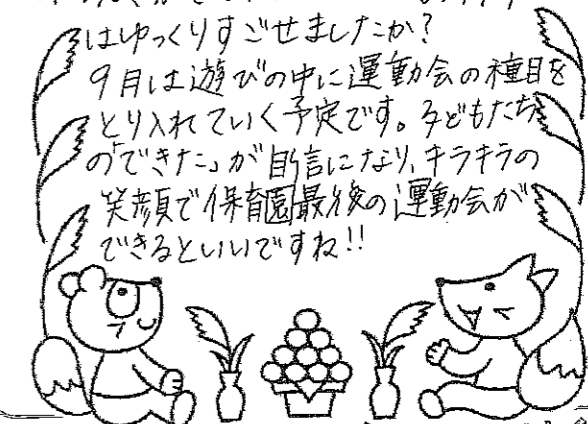 はゆっくりすごせましたか?
9月は遊びの中に運動会の種目を
とり入れていく予定です。子どもたち
の「できた」が自信になり、キラキラの
笑顔で保育園最後の運動会が
できるといいですね!!